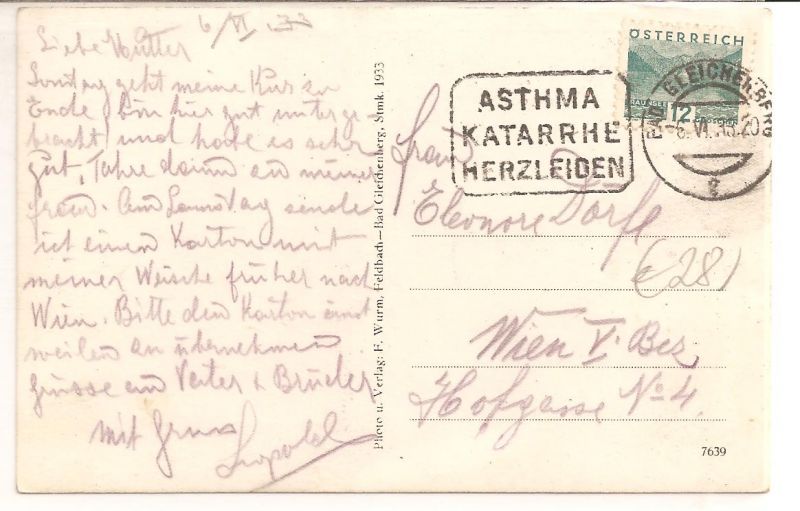 6/VI 33
Liebe Mutter
Sontag geht meine Kur zu
Ende bin hier gut unterge
bracht und habe es sehr
gut, fahre dann zu meiner
frau. Am Samstag sende
ich einen Karton mit
meiner Wäsche früher nach
Wien. Bitte den Karton einst
weilen zu übernehmen
Grüsse an Vater & Brüder
mit Gruss
Leopold
Photo u. Verlag: F. Wurm, Feldbach—Bad Gleichenberg, Stmk. 1933
ASTHMA
KATARRHE
HERZLEIDEN
ÖSTERREICH
12
GROSCHEN
BAD GLEICHENBERG
Frau
Eleonore
(28)
Wien V. Bez
Hofgasse No 4.
7639